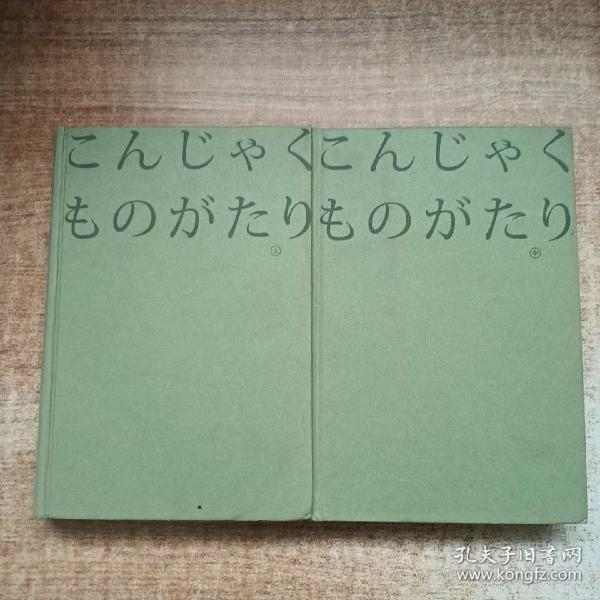 こんじゃく
ものがたり
上
こんじゃく
ものがたり
中
孔夫子旧书网
www.kongfz.com